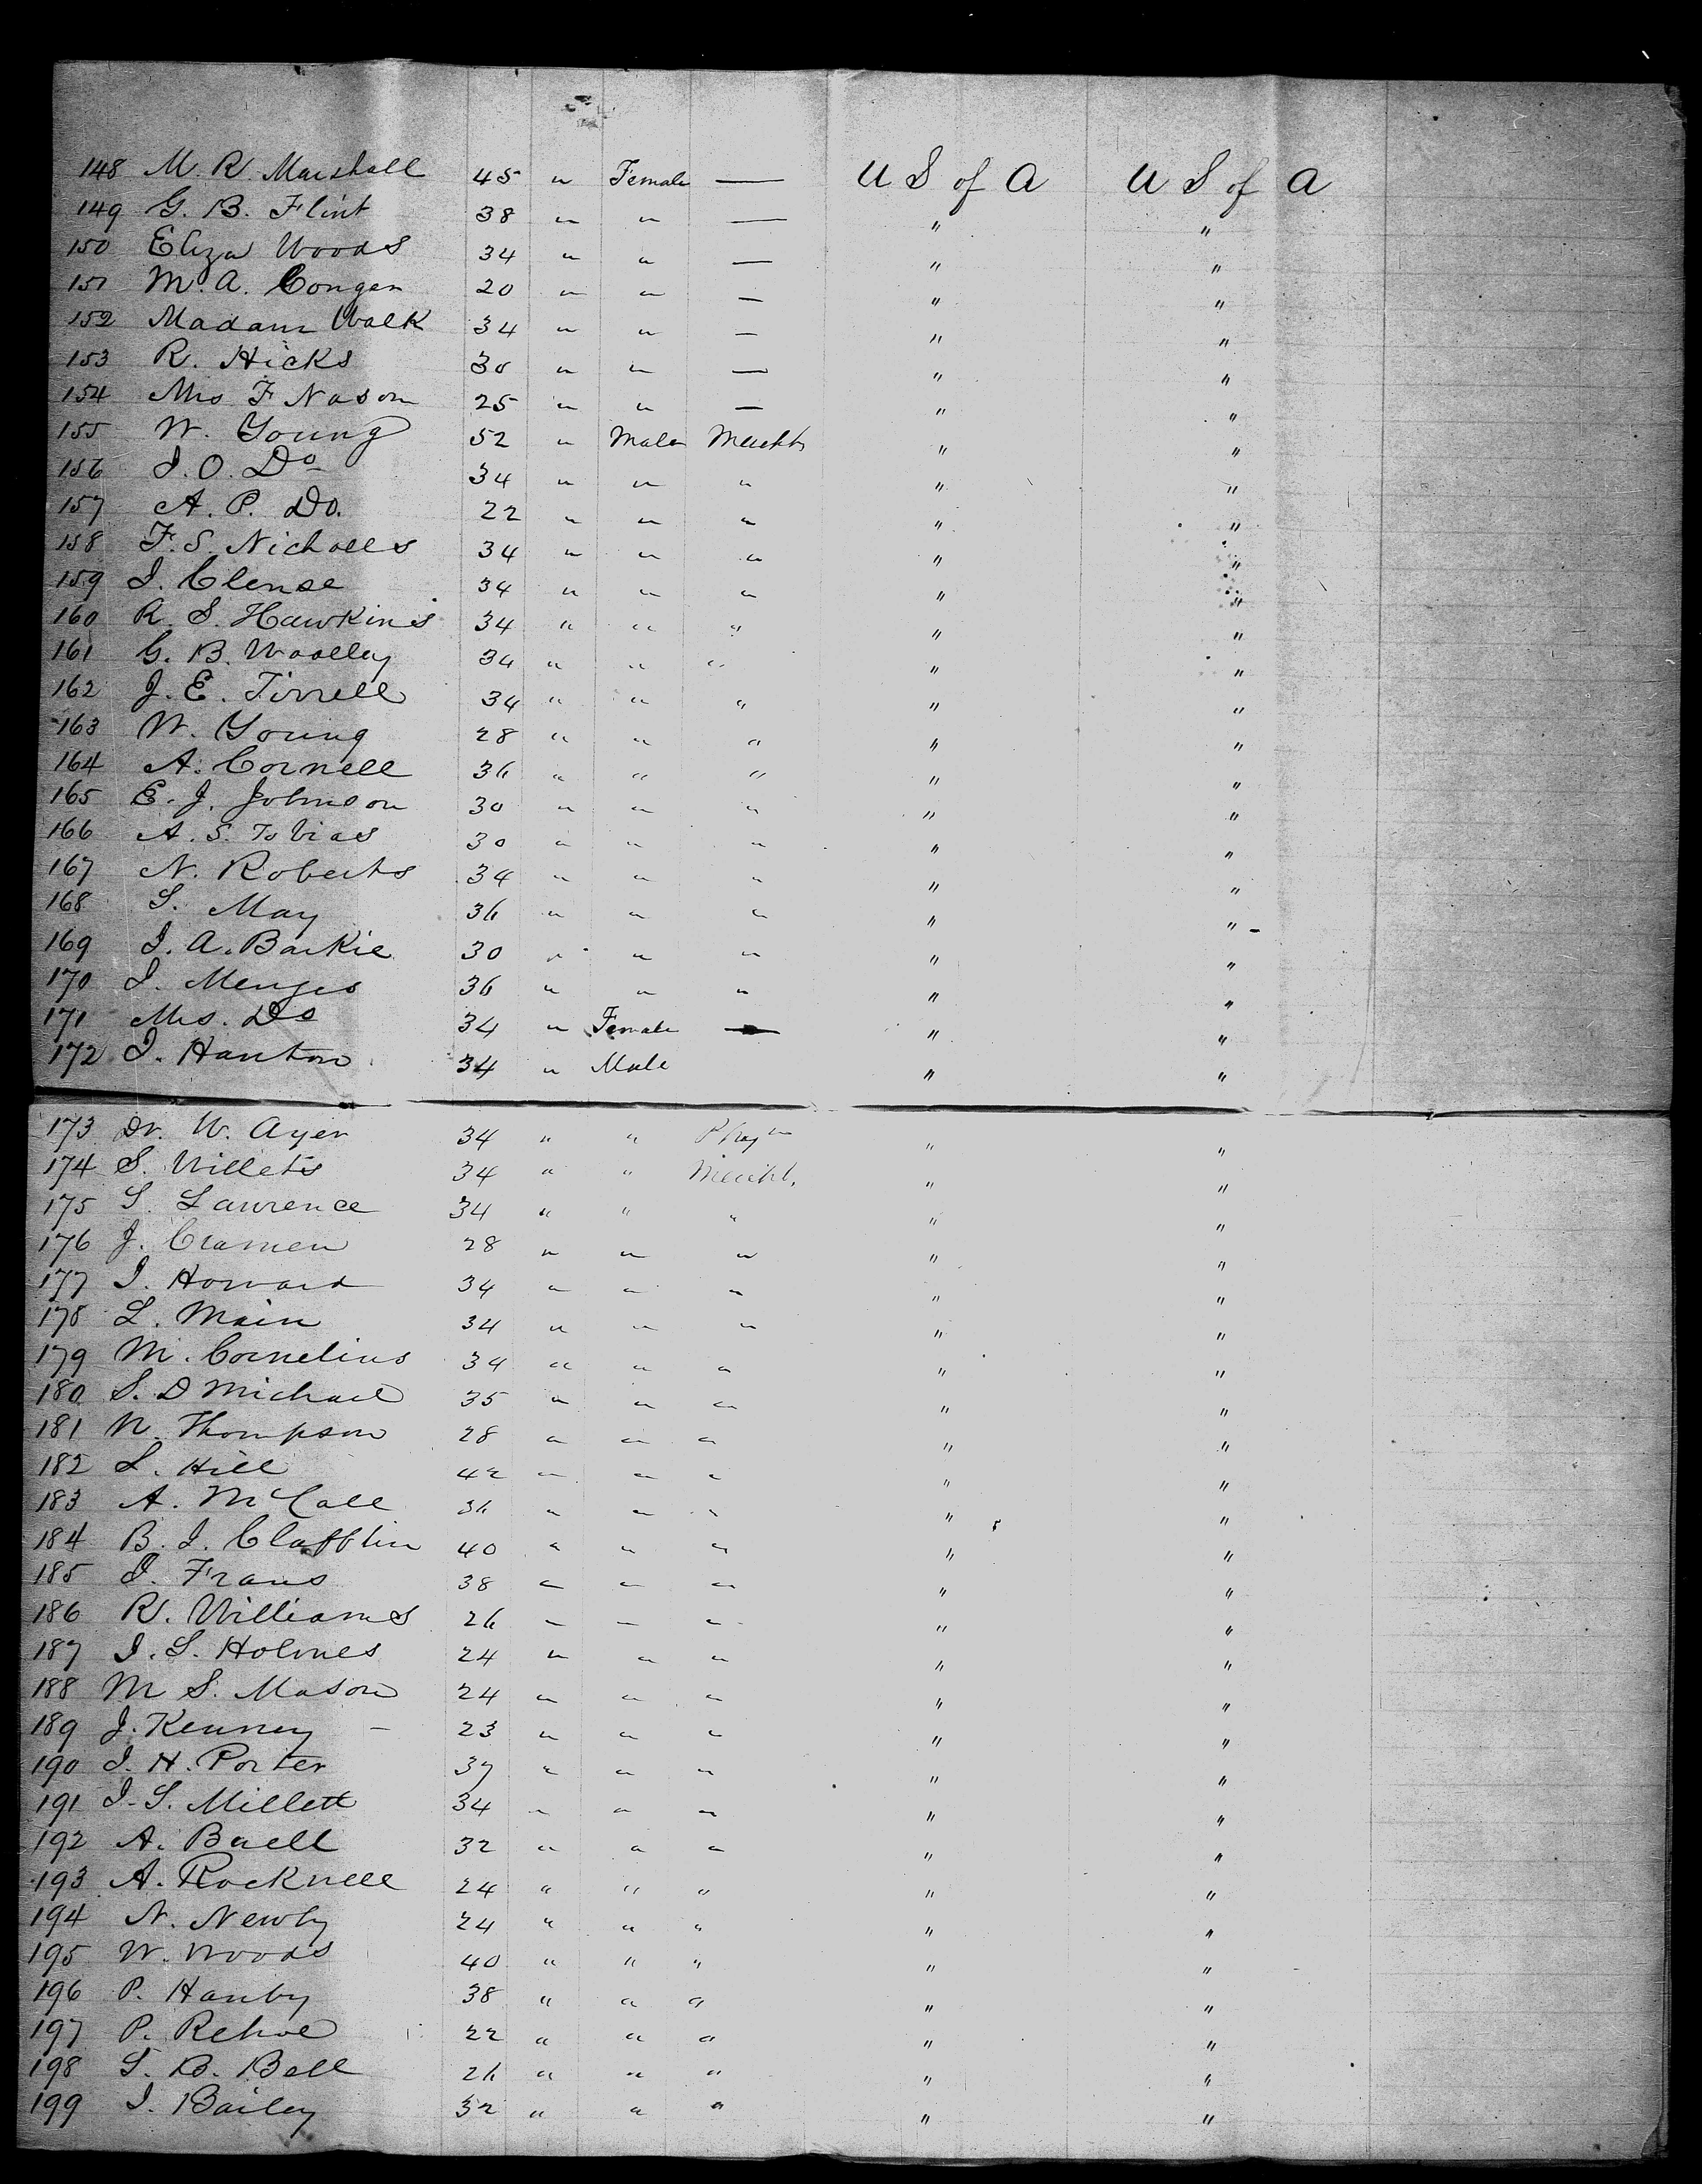 148 M. R. Marshall 45 " Female — U S of A U S of A
149 G. B. Flint 38 " " — " "
150 Eliza Woods 34 " " — " "
151 M. A. Conger 20 " " — " "
152 Madam Walk 34 " " — " "
153 R. Hicks 30 " " — " "
154 Mrs F Nason 25 " " — " "
155 W. Young 52 " Male Mercht " "
156 J. O. Do 34 " " " " "
157 A. P. Do. 22 " " " " "
158 F. S. Nicholls 34 " " " " "
159 J. Clense 34 " " " " "
160 R. S. Hawkins 34 " " " " "
161 G. B. Woolley 34 " " " " "
162 J. E. Tirrell 34 " " " " "
163 W. Young 28 " " " " "
164 A. Cornell 36 " " " " "
165 E. J. Johnson 30 " " " " "
166 A. S. Tobias 30 " " " " "
167 N. Roberts 34 " " " " "
168 S. May 36 " " " " "
169 J. A. Barkie 30 " " " " "
170 J. Menges 36 " " " " "
171 Mrs. Do 34 " Female — " "
172 J. Hanton 34 " Male " "
173 Dr. W. Ayer 34 " " " "
174 S. Willets 34 " " Mercht. " "
175 S. Lawrence 34 " " " " "
176 J. Cramen 28 " " " " "
177 J. Howard 34 " " " " "
178 L. Main 34 " " " " "
179 M. Cornelius 34 " " " " "
180 S. D Michael 35 " " " " "
181 N. Thompson 28 " " " " "
182 L. Hill 42 " " " " "
183 A. McCall 36 " " " " "
184 B. J. Clafflin 40 " " " " "
185 J. Frans 38 " " " " "
186 R. Williams 26 " " " " "
187 J. S. Holmes 24 " " " " "
188 M S. Mason 24 " " " " "
189 J. Kenney 23 " " " " "
190 J. H. Porter 37 " " " " "
191 J. S. Millett 34 " " " " "
192 A. Buell 32 " " " " "
193 A. Rocknell 24 " " " " "
194 N. Newby 24 " " " " "
195 W. Woods 40 " " " " "
196 P. Hanby 38 " " " " "
197 P. Rehoe 22 " " " " "
198 S. B. Bell 26 " " " " "
199 J. Bailey 32 " " " " "